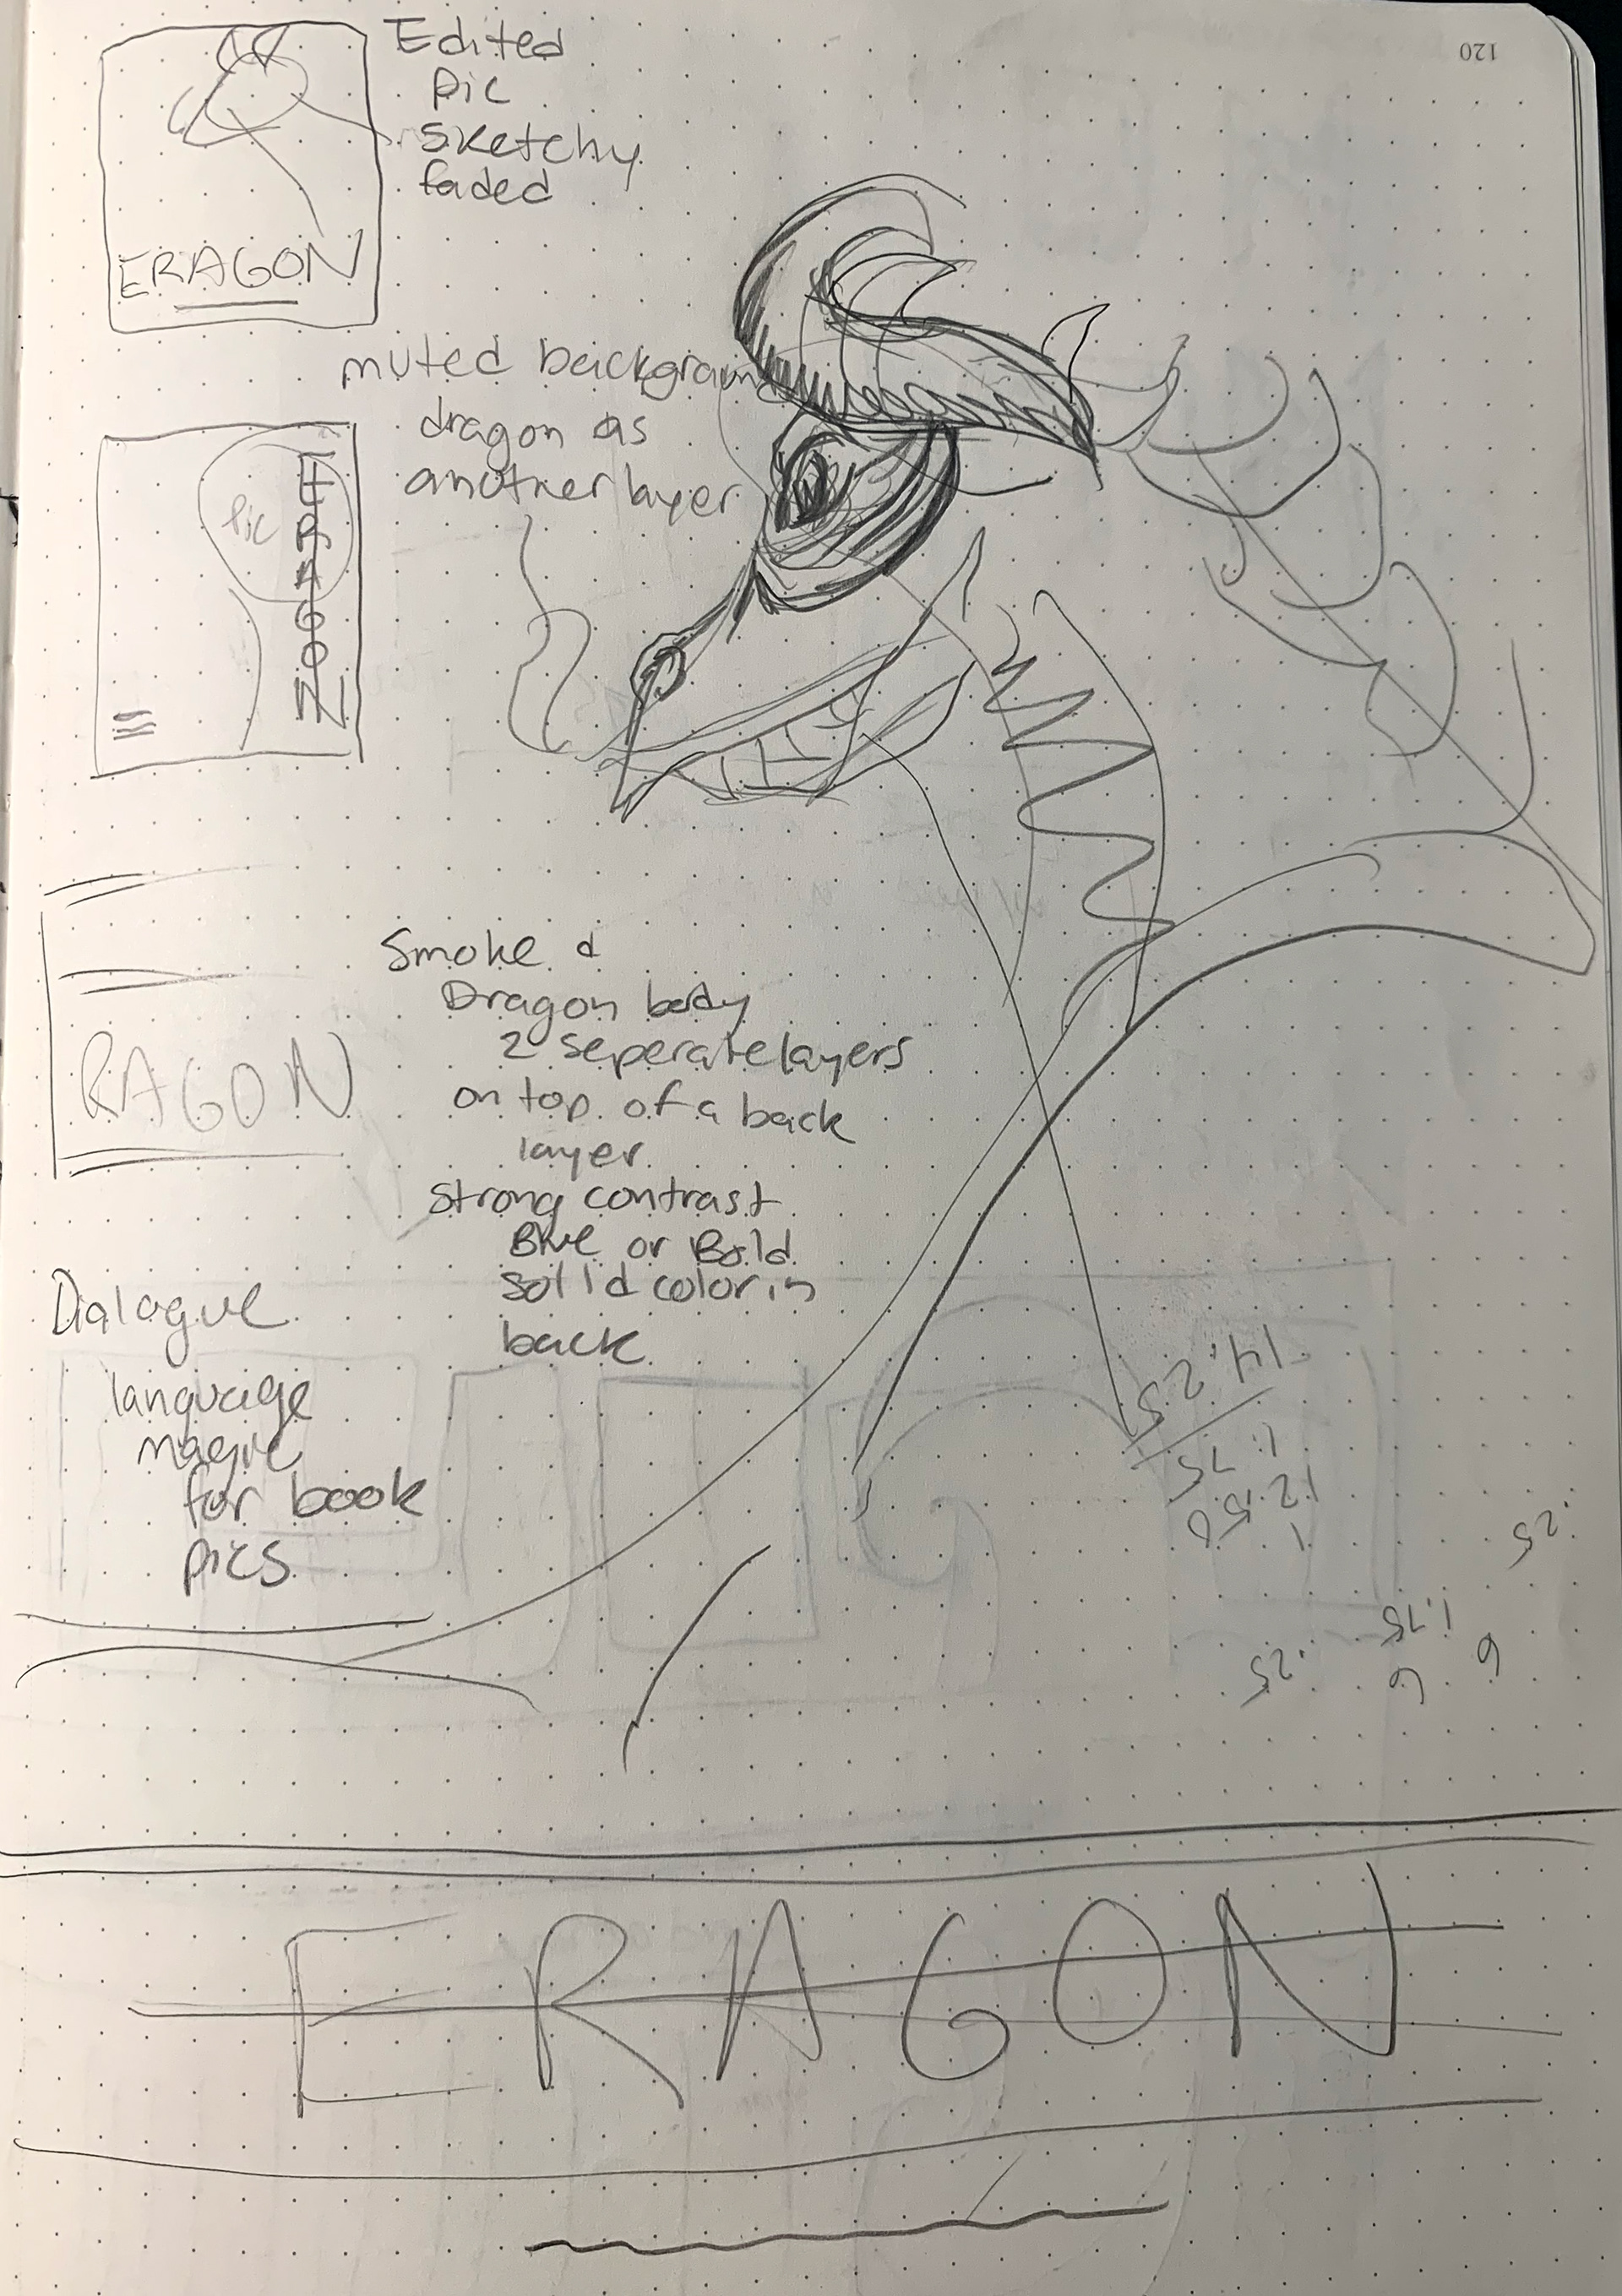 120
Edited
pic
sketchy
faded
ERAGON
muted background
dragon as
another layer
pic
ERAGON
Smoke &
Dragon body
2 seperate layers
on top of a back
layer
strong contrast
Blue or Bold
solid color in
back
RAGON
Dialogue
language
magic
for book
pics
1
12.50
1.75
14.25
.25
1.75
.25
6
6
ERAGON